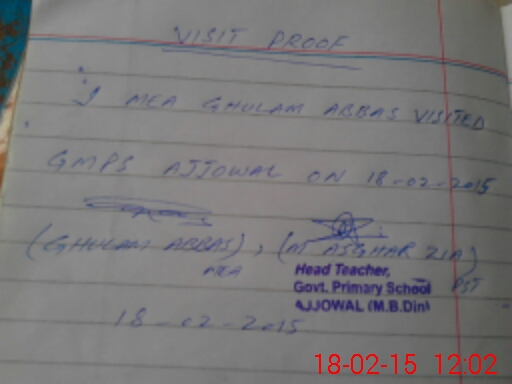 VISIT PROOF
I MEA GHULAM ABBAS VISITED
GMPS AJJOWAL ON 18-02-2015
(GHULAM ABBAS), ASGHAR ZIA)
MEA
PST
Head Teacher,
Govt. Primary School
AJJOWAL (M.B.Din)
18-02-2015
18-02-15 12:02